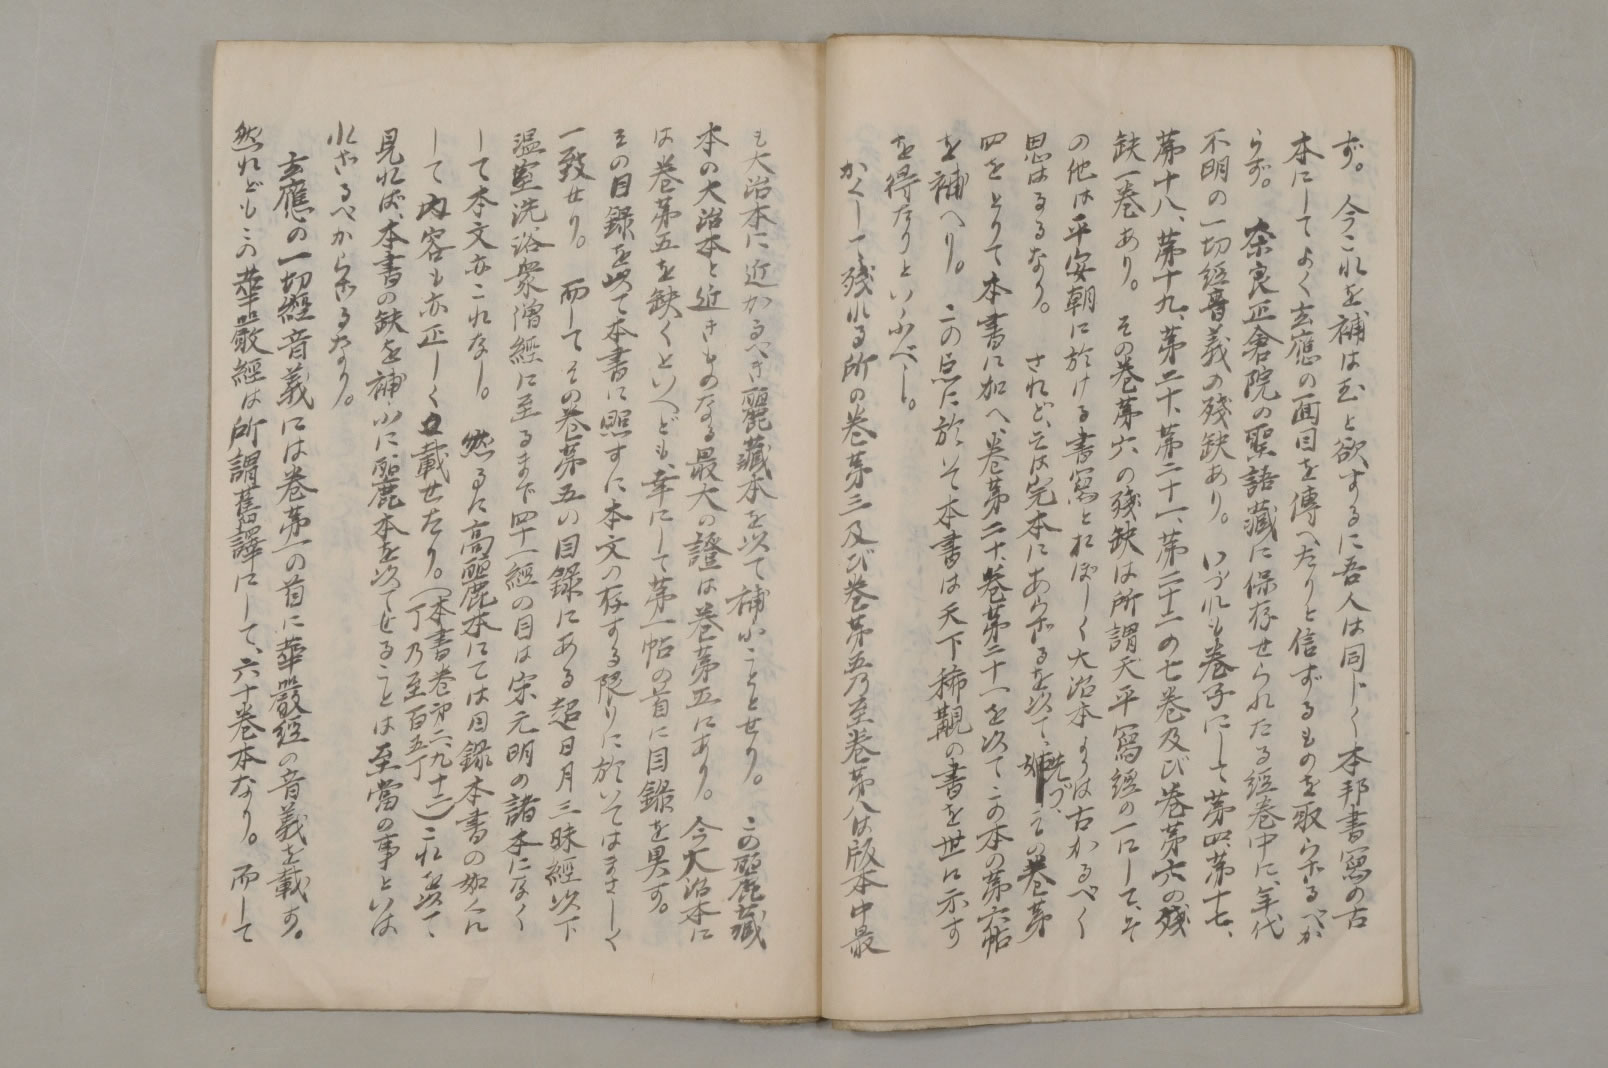 ず。今これを補は むと欲するに吾人は同じく本邦書寫の古
本にしてよく玄應の面目を傳へたりと信ずるものを取らざるべか
らず。奈良正倉院の聖語藏に保存せられたる経巻中に、年代
不明の一切経音義の殘缺あり。いづれも巻子にして第四、第十七、
第十八、第十九、第二十、第二十一、第二十二の七巻及び巻第六の殘
缺一巻あり。その巻第六の殘缺は所謂天平寫経の一にして、そ
の他は平安朝に於ける書寫とおぼしく大治本よりは古かるべく
思はるるなり。されど、そは完本にあらざるを以て、先づ、その巻第
四をとりて本書に加へ、巻第二十、巻第二十一を以てこの本の第六帖
を補へり。この点に於いて本書は天下稀覯の書を世に示す
を得たりといふべし。
かくして殘れる所の巻第三及び巻第五乃至巻第八は版本中最
も大治本に近かるべき麗藏本を以て補ふこととせり。この麗藏
本の大治本と近きものなる最大の證は巻第五にあり。今大治本に
は巻第五を缺くといへども、幸にして第一帖の首に目錄を具す。
その目錄を以て本書に照すに本文の存する限りに於いてはまさしく
一致せり。而してその巻第五の目錄にある超日月三昧經以下
温室洗浴衆僧經に至るまで四十一經の目は宋元明の諸本になく
して本文亦これなし。然るに高麗本にては目錄本書の如くに
して内容も亦正しく載せたり。(本書巻第二、九十二丁乃至百五丁)これを以て
見れば、本書の缺を補ふに麗本を以てせることは至當の事といは
れざるべからざるなり。
玄應の一切經音義には巻第一の首に華嚴經の音義を載す。
然れどもこの華嚴經は所謂舊譯にして、六十巻本なり。而して